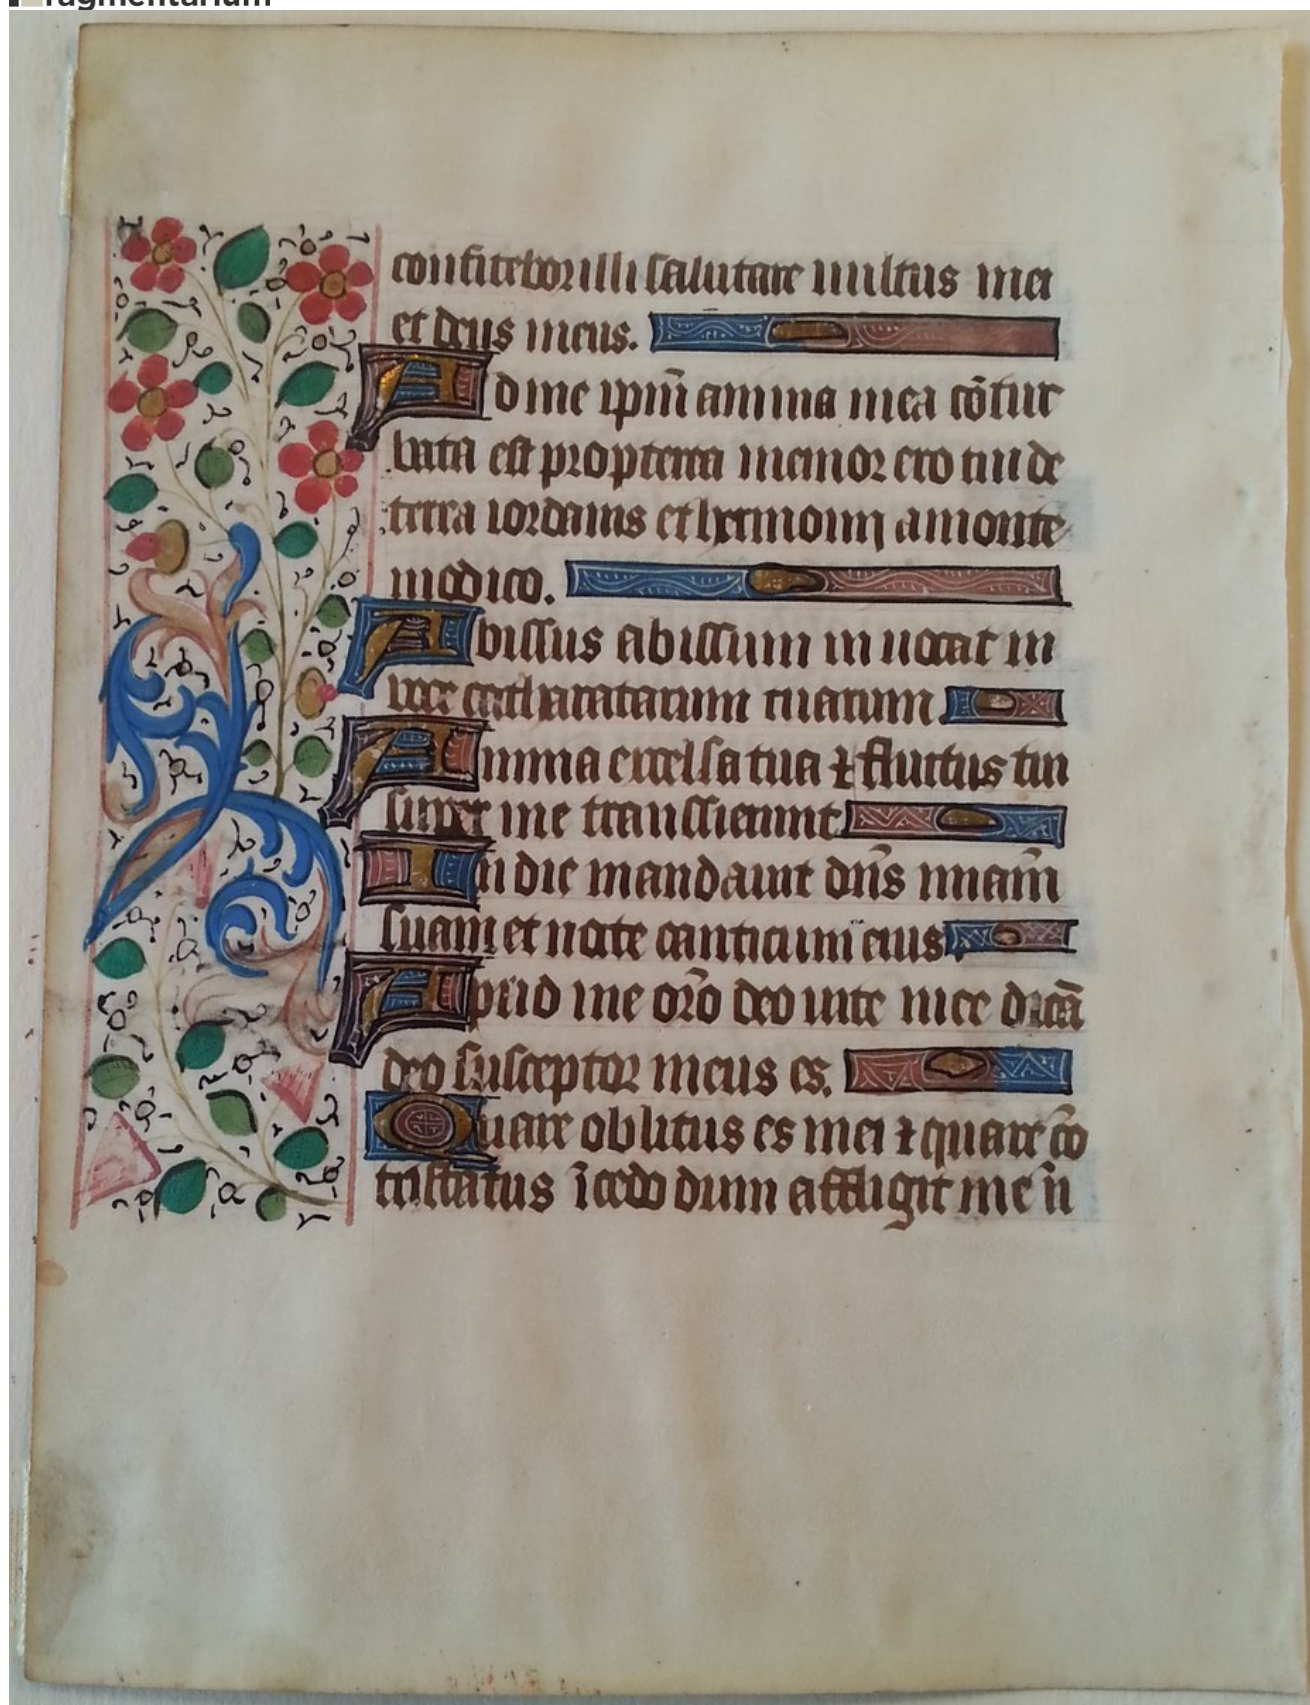 fragmentarium
confitebor illi salutare uultus mei
et deus meus.
Ad me ipm̄ anima mea cōtur
bata est propterea memor ero tui de
terra iordanis et hermonij a monte
modico.
Abissus abissum inuocat in
uoce catharatarum tuarum
Omnia excelsa tua ⁊ fluctus tui
super me transsierunt
In die mandauit dn̄s mīam
suam et nocte canticum eius.
Apud me orō deo uite mee dicā
deo susceptor meus es.
Quare oblitus es mei ⁊ quare cō
tristatus īcedo dum affligit me īi